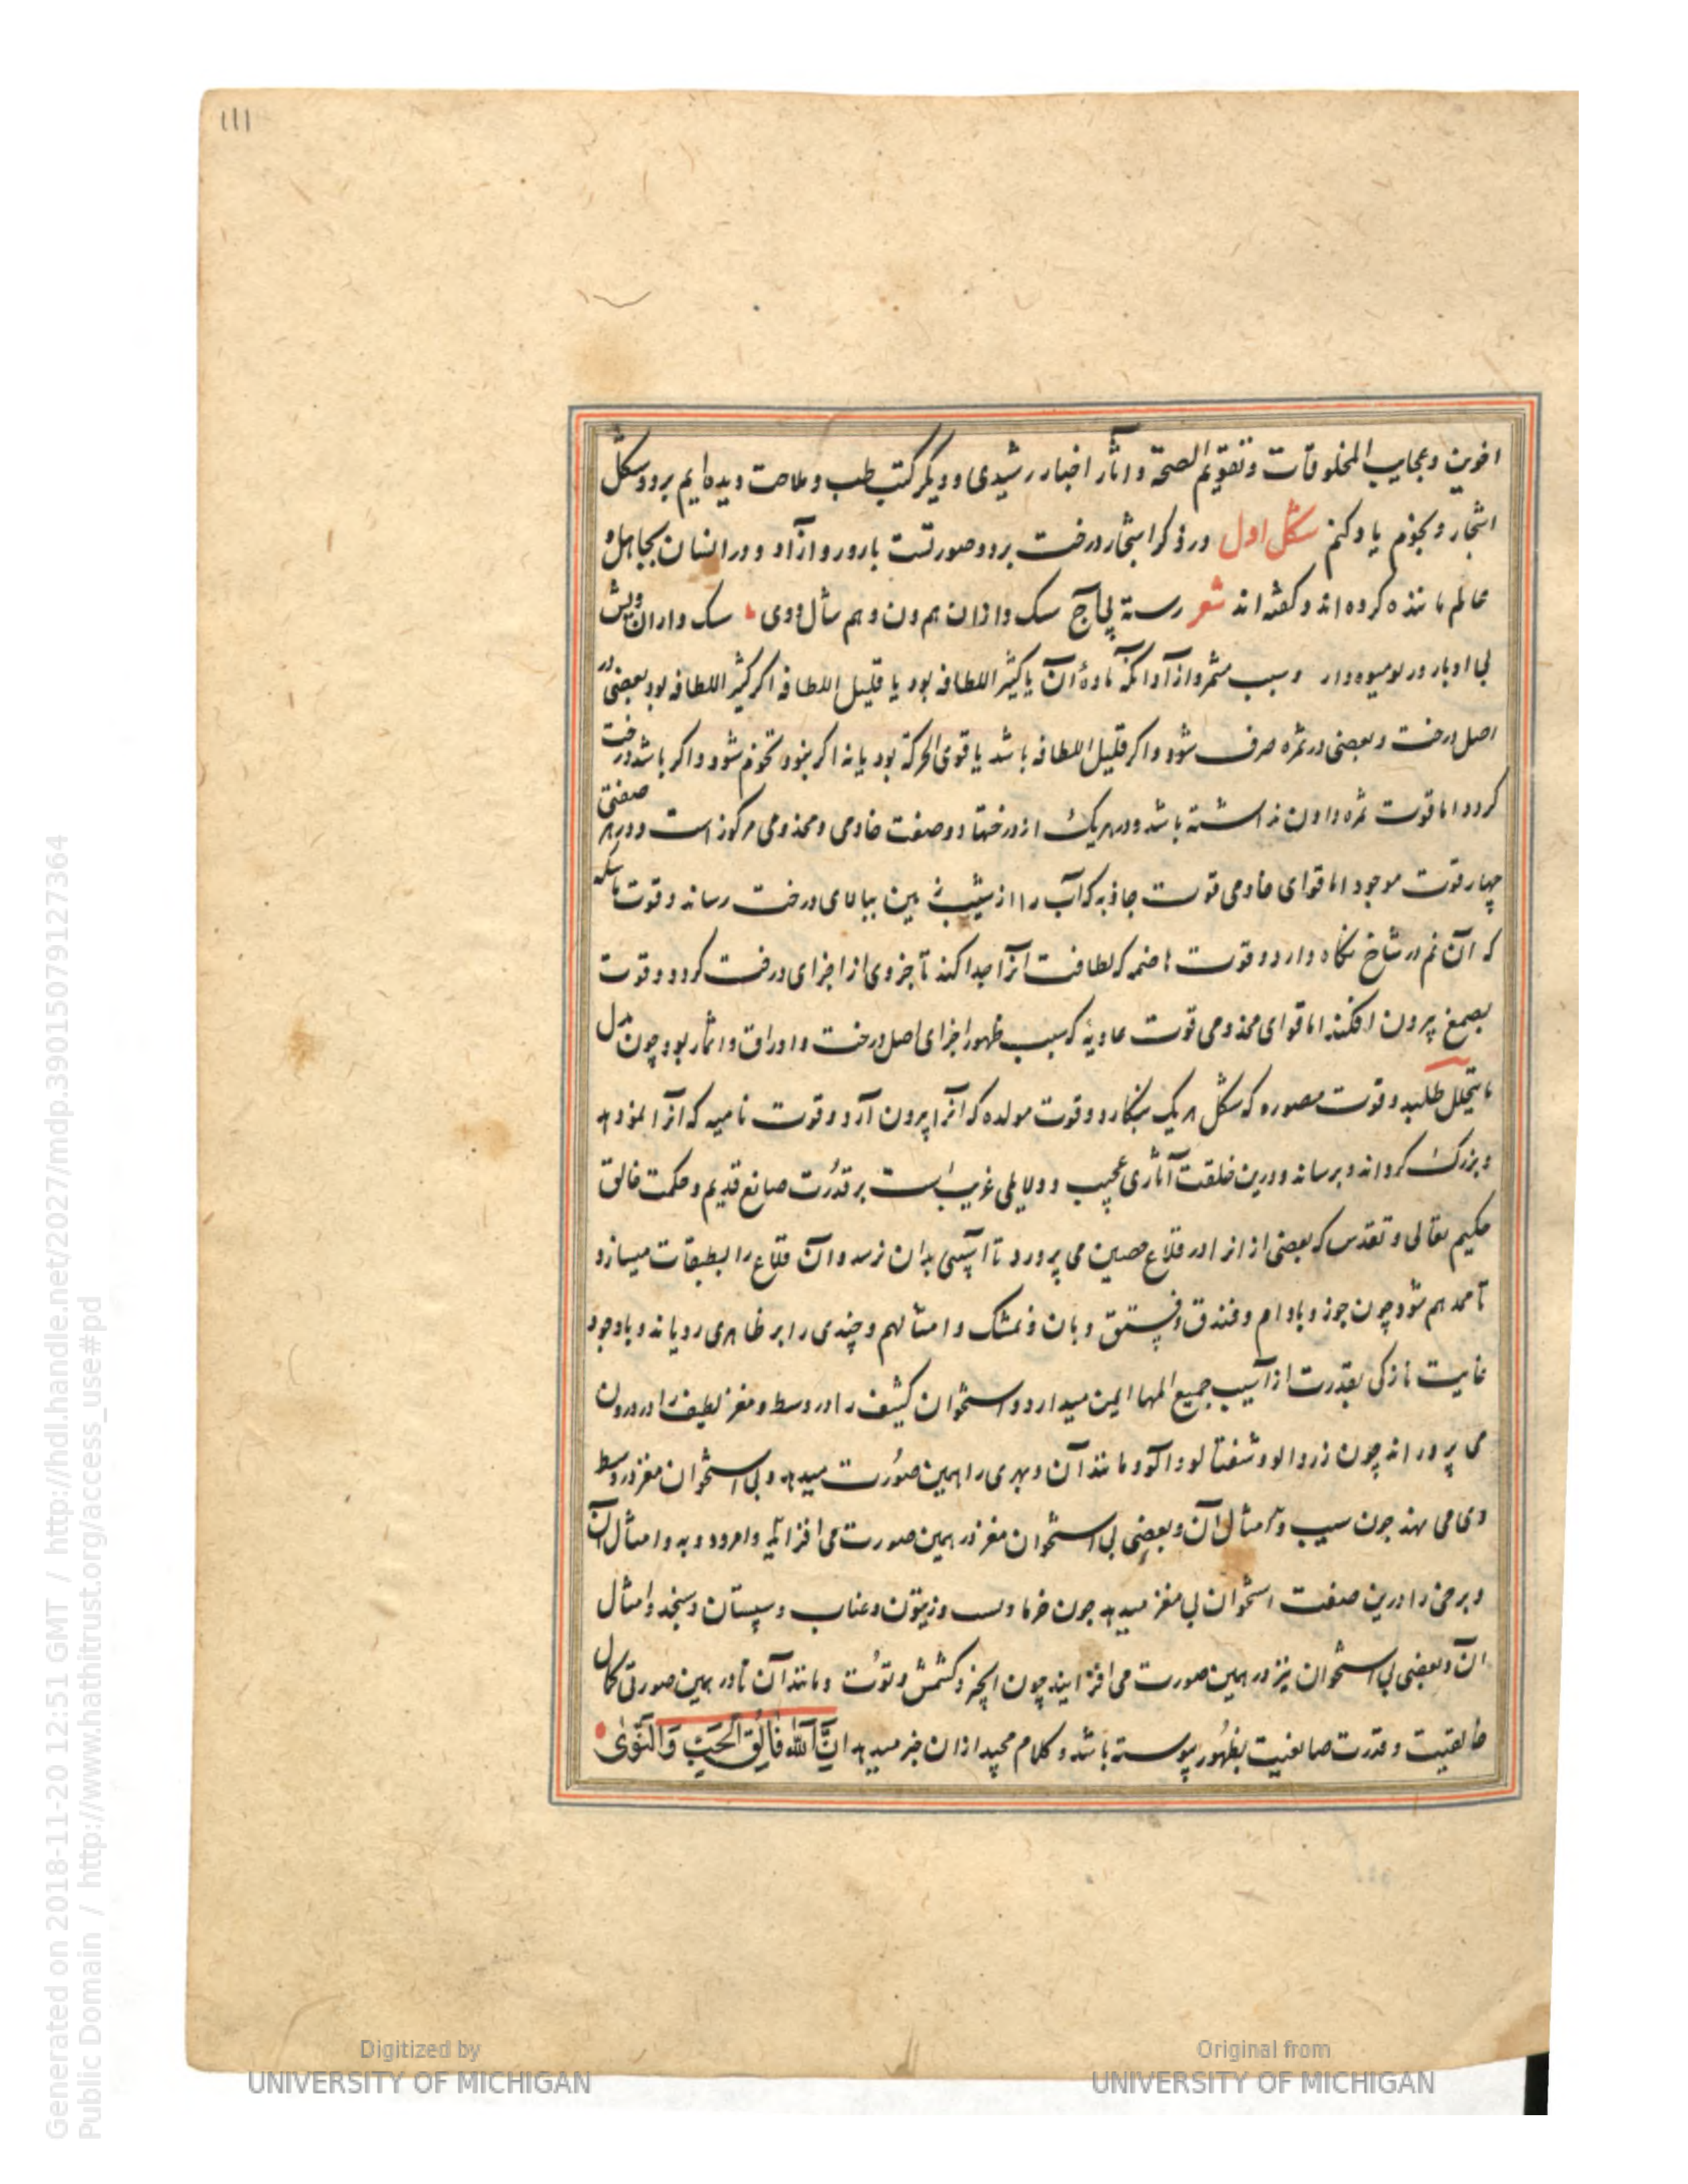 111
اخوین و عجایب المخلوقات و تقویم الصحة و اثار اخبار رشیدی و دیکر کتب طب و ملاحت دیده ایم بر دو شکل
اشجار و نجوم یاد کنم شکل اول در ذکر اشجار درخت بر دو صورتست بارور و ازآد و در انسان بجا اهل
عالم مانند ه کرده اند و کفته اند شعر رسته
بی او بار ور بومیوه دار و سبب مثمر و ازآد انکه مادهٔ آن یا کثیر اللطافه بود یا قلیل اللطافه اکر کثیر اللطافه بود بعضی در
اصل درخت و بعضی در ثمره صرف شود و اکر قلیل اللطافه باشد یا قوی الحرکة بود یا نه اکر نبود نجوم شود و اکر باشد درخت
کردد اما قوت ثمره دادن نداشته باشد و در هریک از درختها دو صفت خادمی و مخدومی مرکوز است و در هر صفتی
چهار قوت موجود اما قوای خادمی قوت جاذبه که آب را از شیب زمین ببالای درخت رساند و قوت ماسکه
که آن نم در شاخ نکاه دارد و قوت هاضمه که لطافت آنرا جدا کند تا جزوی از اجزای درخت کردد و قوت
بصمغ بیرون افکند اما قوای مخدومی قوت غاذیه که سبب ظهور اجزای اصل درخت و اوراق و اثمار بود چون بدل
ما یتحلل طلبد و قوت مصوره که شکل هر یک بنکارد و قوت مولده که آنرا بیرون آرد و قوت نامیه که آنرا نمو دهد
و بزرک کرداند و برساند و درین خلقت آثاری عجیب و دلایلی غریب است بر قدرت صانع قدیم و حکمت خالق
حکیم تعالی و تقدس که بعضی از انرا در قلاع حصین می پرورد تا آسیبی بدان نرسد و آن قلاع را بطبقات میسازد
تا ممد هم شود چون جوز و بادام و فندق و فستق و بان و نمشک و امثالهم و چندی را بر ظاهری رویاند و باوجود
غایت نازکی بقدرت از آسیب جمیع المها ایمن میدارد و استخوان کثیف را در وسط و مغز لطیف را در درون
می پروراند چون زردالو و شفتالو و آلو و مانند آن و بهری را همین صورت میدهد و بی استخوان مغز در وسط
وی می نهد چون سیب و امثال آن و بعضی بی استخوان مغز در همین صورت می افزاید و امرود و به و امثال آن
و برخی را درین صفت استخوان بی مغز میدهد چون خرما و زیتون و عناب و سپستان و سنجد و امثال
ان و بعضی بی استخوان نیز در همین صورت می افزایند چون انجیر و کشمش و توت و مانند آن تا در همین صورتی کمال
خالقیت و قدرت صانعیت بظهور پیوسته باشد و کلام مجید ازان خبر میدهد انَّ اللّٰه فَالِقُ الْحَبِّ وَالنَّوٰی
Generated on 2018-11-20 12:51 GMT / http://hdl.handle.net/2027/mdp.39015079127364
Public Domain / http://www.hathitrust.org/access_use#pd
Digitized by
UNIVERSITY OF MICHIGAN
Original from
UNIVERSITY OF MICHIGAN